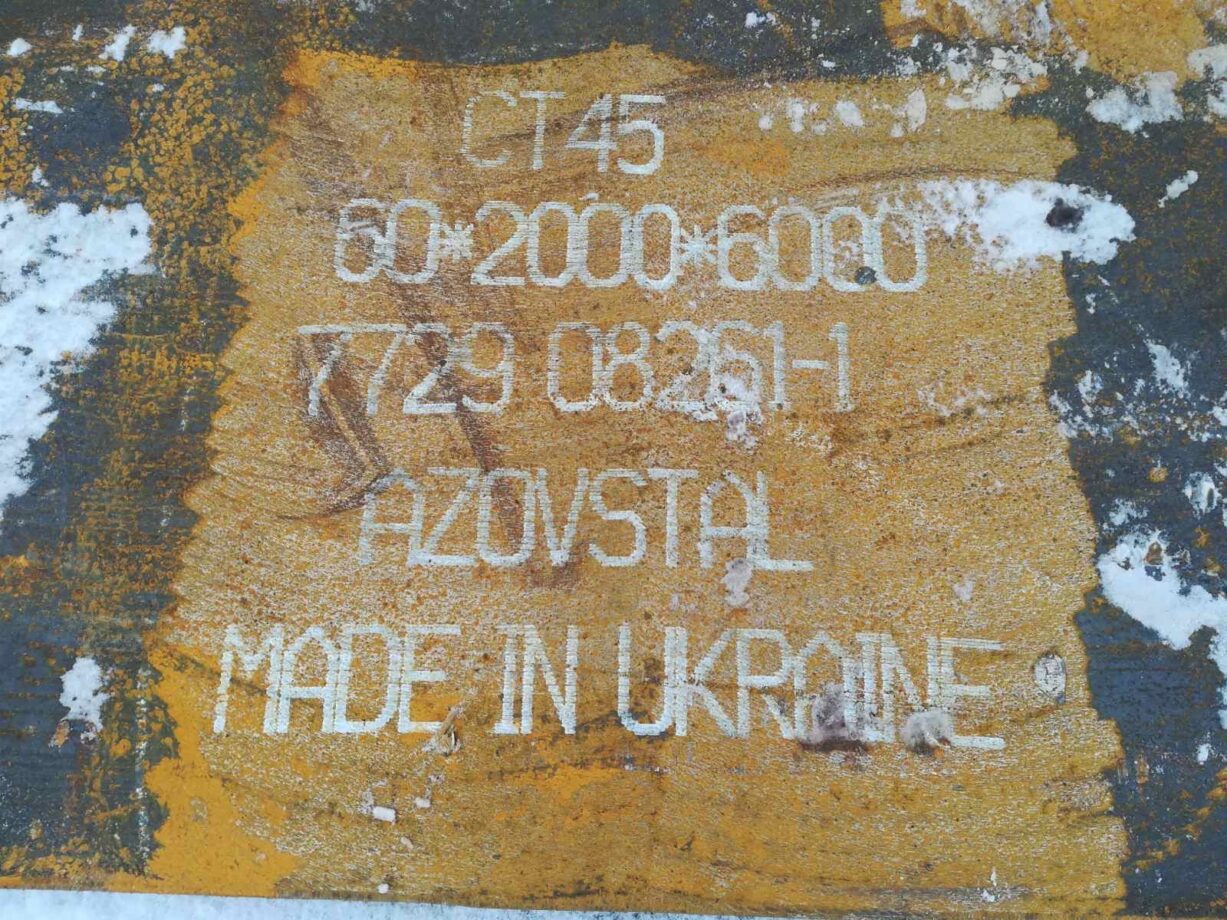 СТ45
60*2000*6000
7729 08261-1
AZOVSTAL
MADE IN UKRAINE